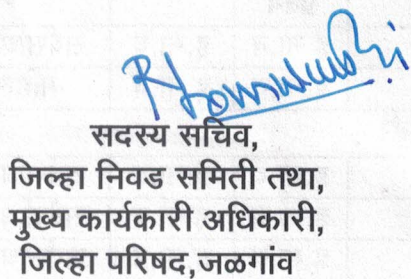 सदस्य सचिव,
जिल्हा निवड समिती तथा,
मुख्य कार्यकारी अधिकारी,
जिल्हा परिषद,जळगांव